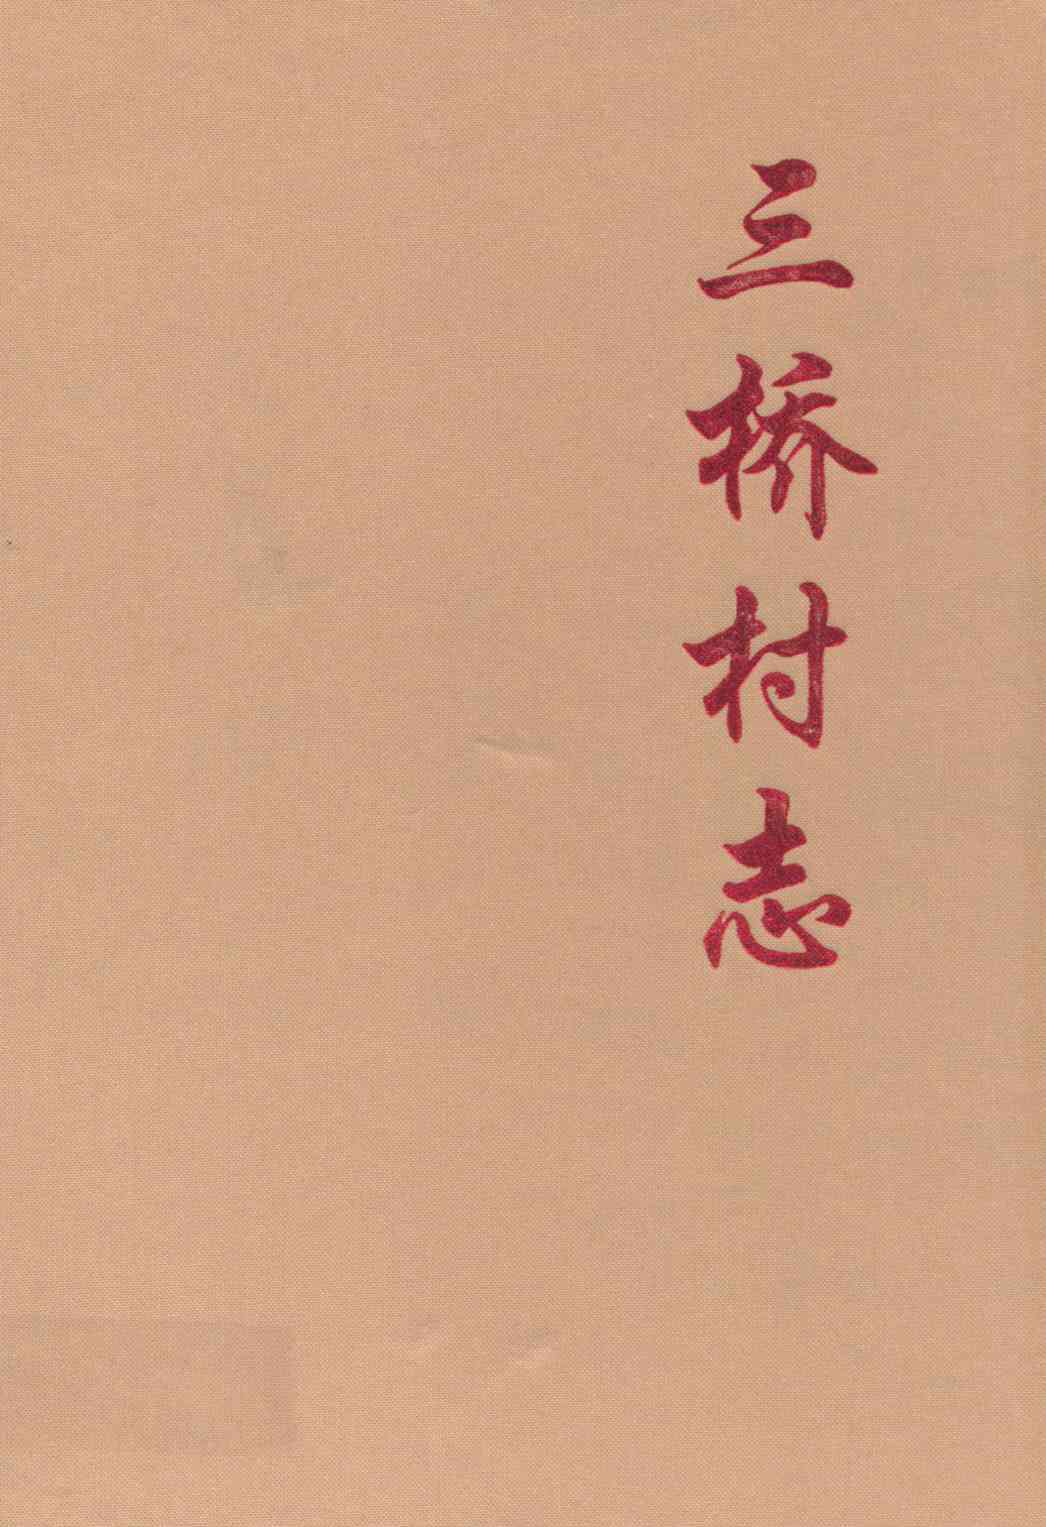 三桥村志